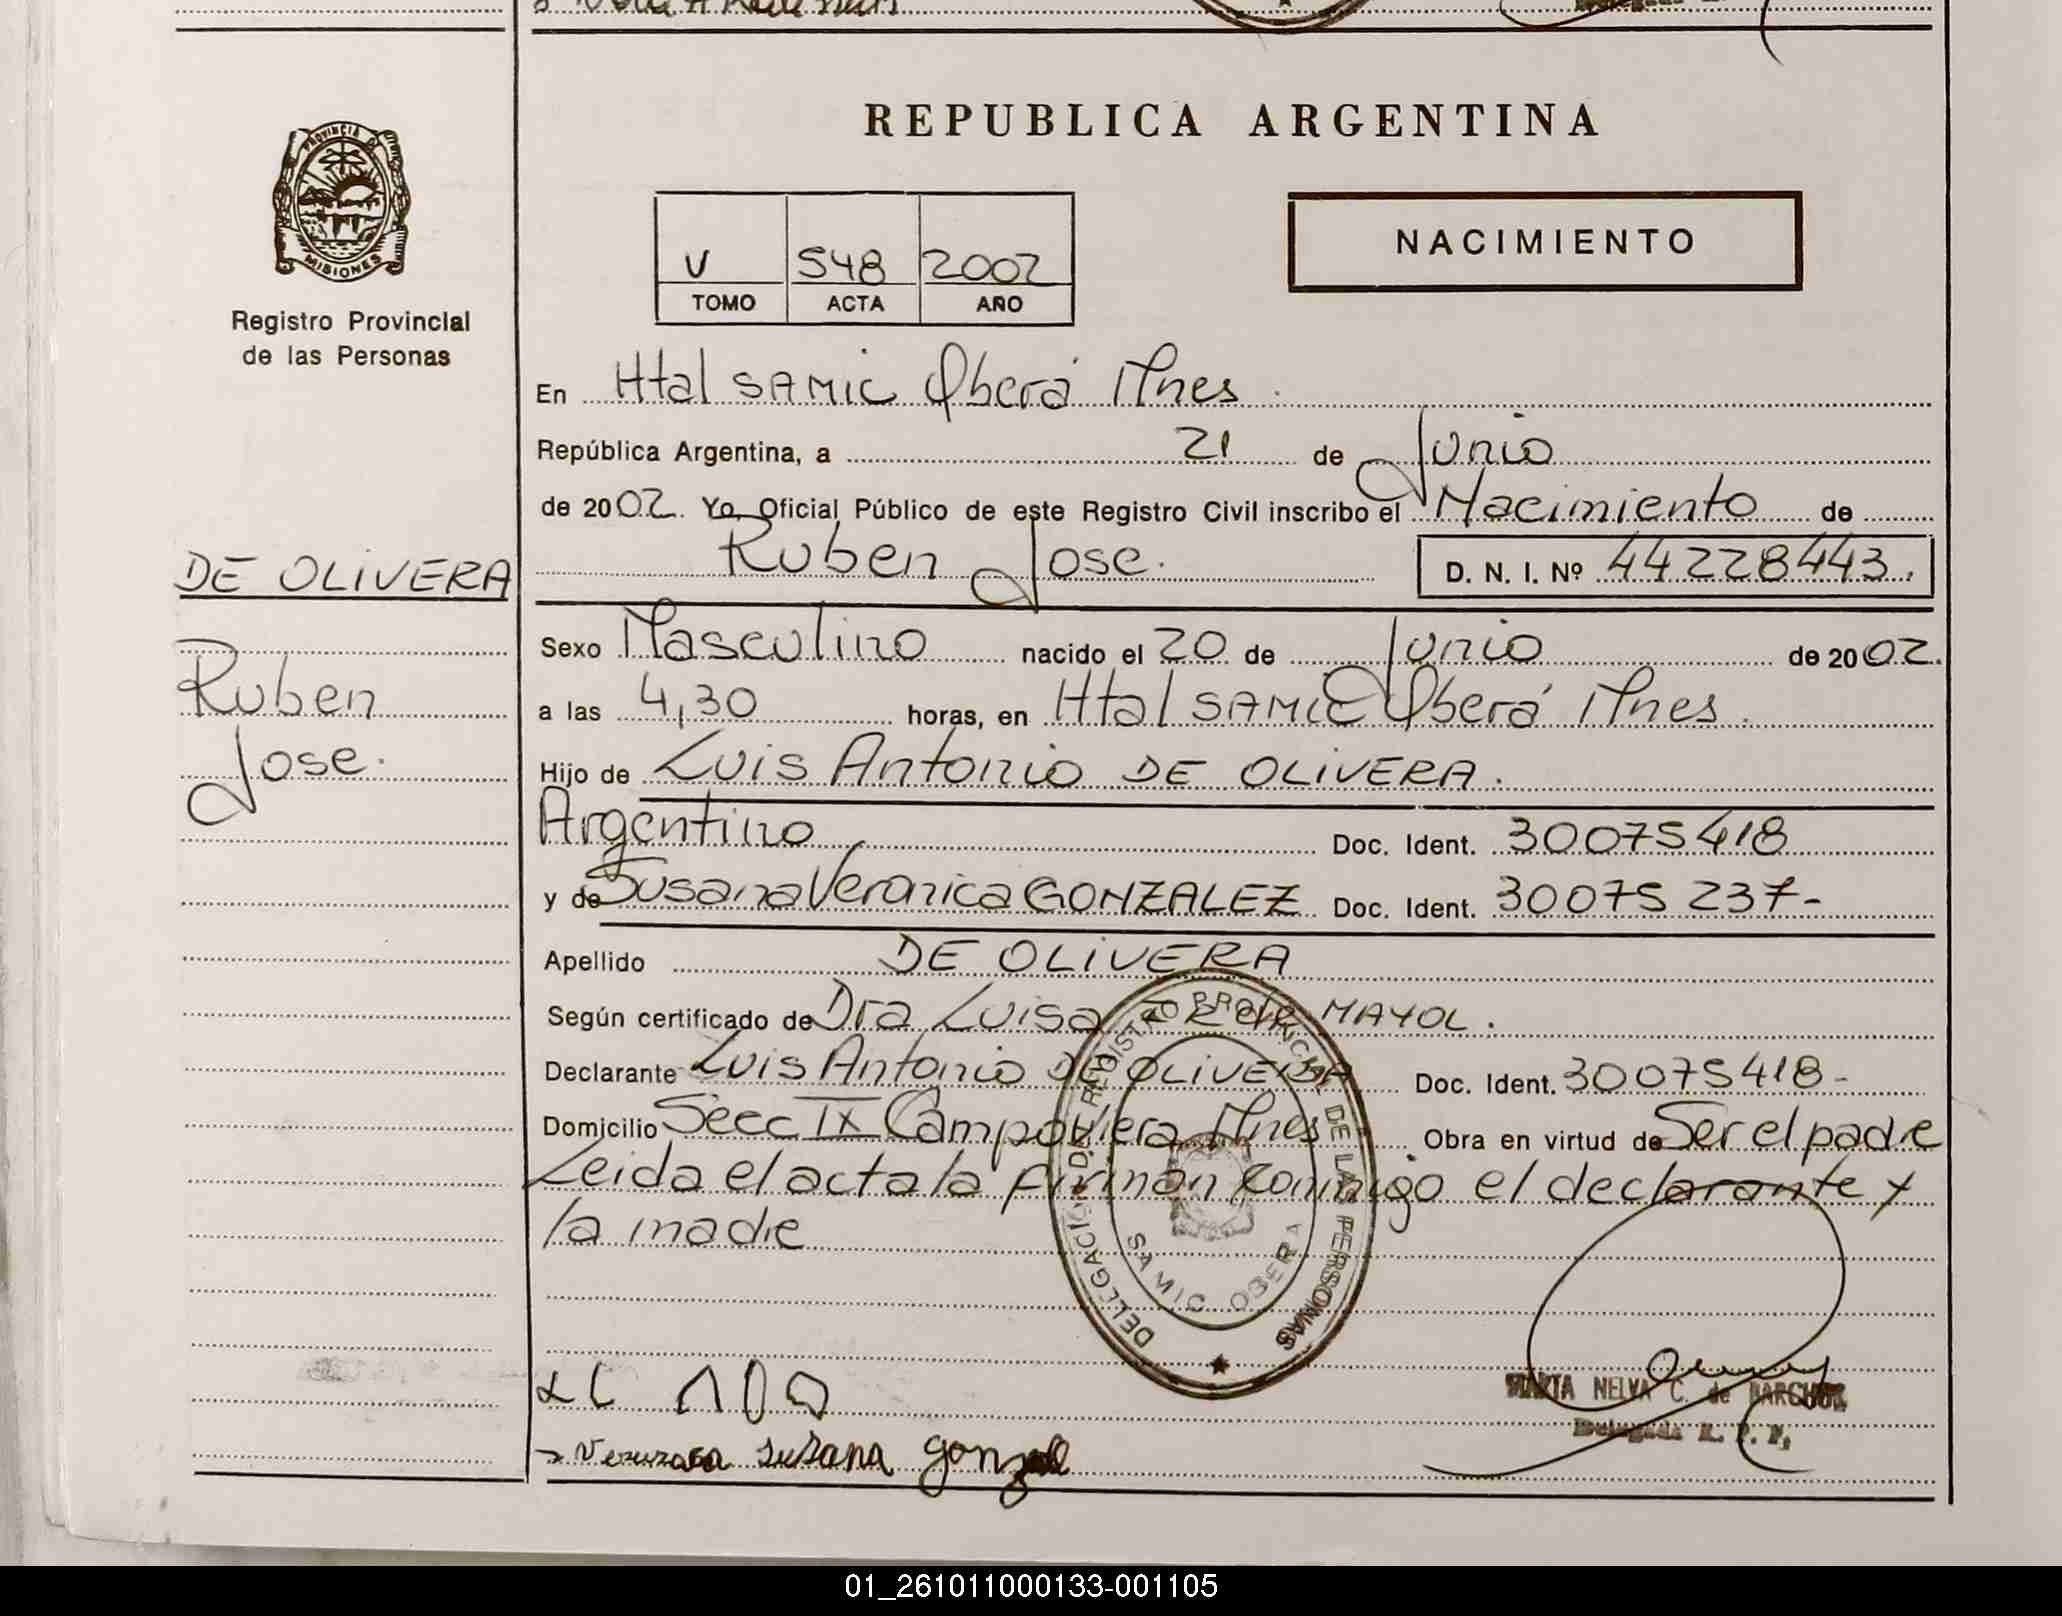 PROVINCIA DE
MISIONES
Registro Provincial
de las Personas
DE OLIVERA
Ruben
Jose.
REPUBLICA ARGENTINA
V 548 2002
TOMO ACTA AÑO
NACIMIENTO
En Htal SAMIC Oberá Mnes.
República Argentina, a 21 de Junio
de 2002. Yo, Oficial Público de este Registro Civil inscribo el Nacimiento de
Ruben Jose. D. N. I. Nº 44228443.
Sexo Masculino nacido el 20 de Junio de 2002.
a las 4,30 horas, en Htal SAMIC Oberá Mnes.
Hijo de Luis Antonio DE OLIVERA.
Argentino Doc. Ident. 30075418
y de Susana Veronica GONZALEZ Doc. Ident. 30075237-
Apellido DE OLIVERA
Según certificado de Dra Luisa MAYOL.
Declarante Luis Antonio DE OLIVERA Doc. Ident. 30075418-
Domicilio Secc IX Campo Viera Mnes Obra en virtud de Ser el padre
Leida el acta la firman conmigo el declarante y
la madre
DELEGACION DEL REGISTRO PROVINCIAL DE LAS PERSONAS
SAMIC OBERA
susana gonzal
MARTA NELVA C. de
Delegada R. P. P.
01_261011000133-001105